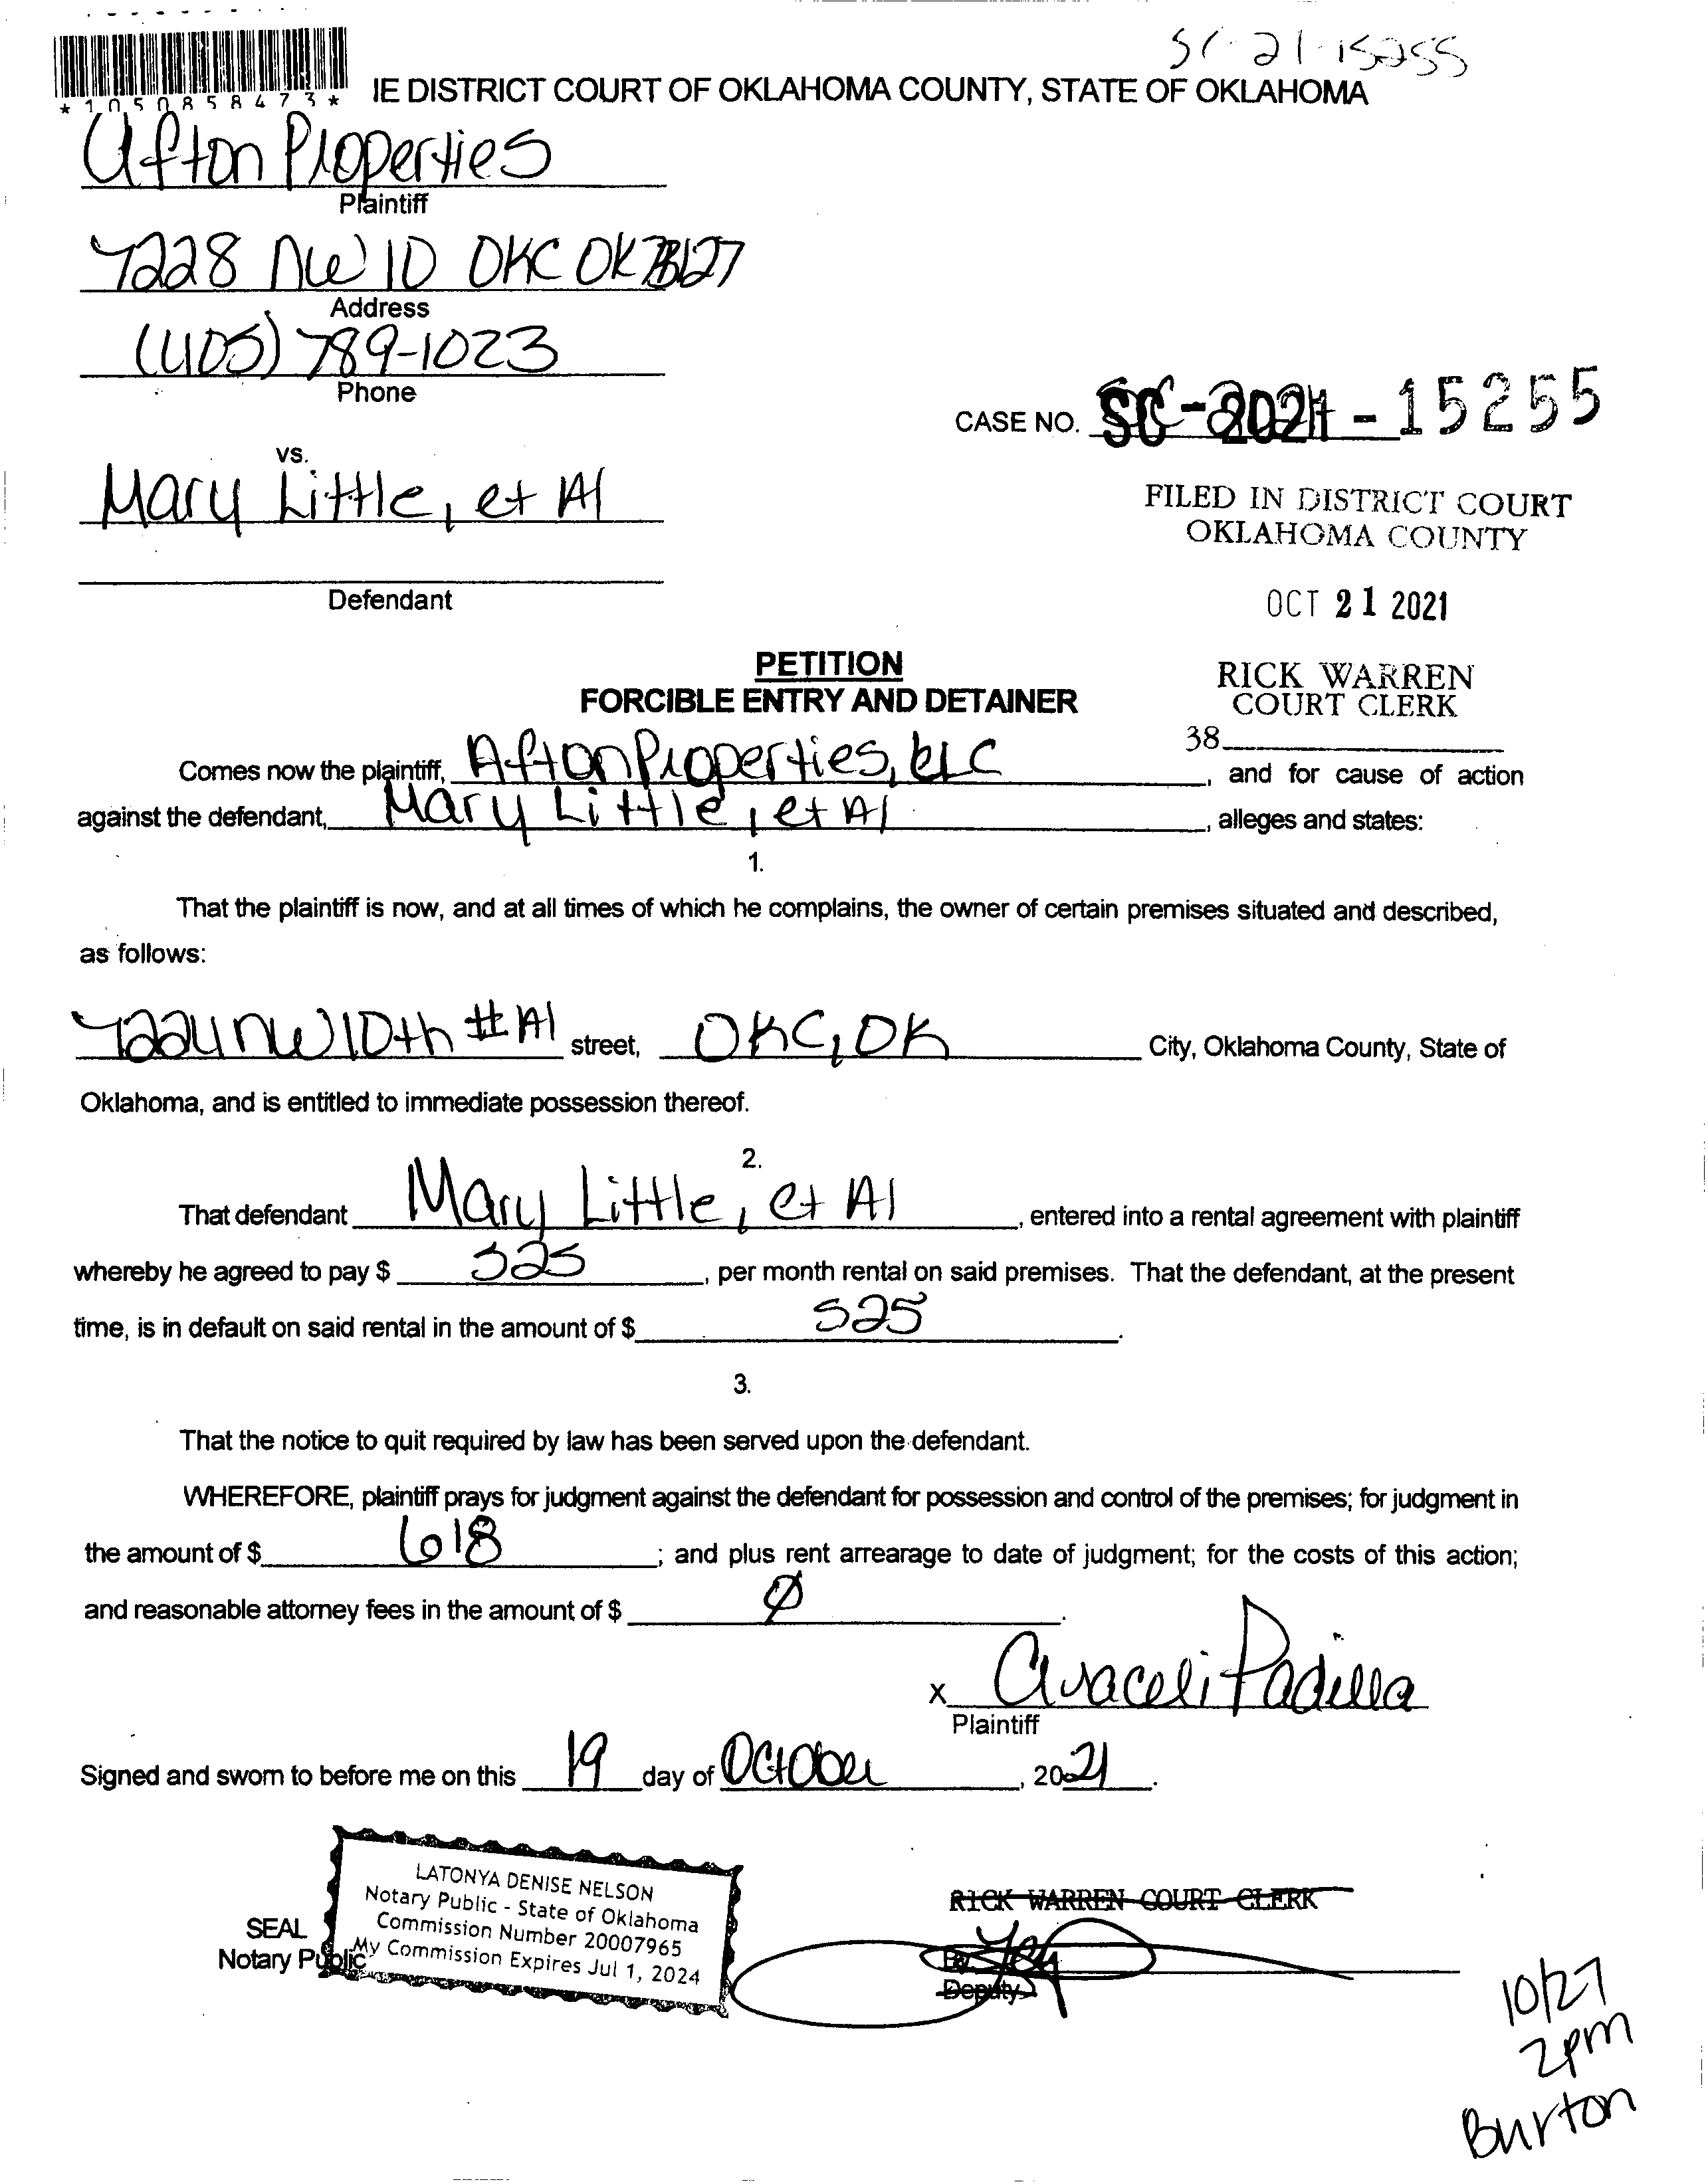 SC-21-15255
*1050858473*
IE DISTRICT COURT OF OKLAHOMA COUNTY, STATE OF OKLAHOMA
Afton Properties
Plaintiff
7228 NW 10 OKC OK 73127
Address
(405) 789-1023
Phone
CASE NO. SC-2021-15255
vs.
Mary Little, et Al
Defendant
FILED IN DISTRICT COURT
OKLAHOMA COUNTY
OCT 21 2021
RICK WARREN
COURT CLERK
38
PETITION
FORCIBLE ENTRY AND DETAINER
Comes now the plaintiff, Afton Properties, LLC, and for cause of action
against the defendant, Mary Little, et Al, alleges and states:
1.
That the plaintiff is now, and at all times of which he complains, the owner of certain premises situated and described,
as follows:
7224 NW 10th #A1 street, OKC, OK City, Oklahoma County, State of
Oklahoma, and is entitled to immediate possession thereof.
2.
That defendant Mary Little, et Al, entered into a rental agreement with plaintiff
whereby he agreed to pay $ 525, per month rental on said premises. That the defendant, at the present
time, is in default on said rental in the amount of $ 525.
3.
That the notice to quit required by law has been served upon the defendant.
WHEREFORE, plaintiff prays for judgment against the defendant for possession and control of the premises; for judgment in
the amount of $ 618; and plus rent arrearage to date of judgment; for the costs of this action;
and reasonable attorney fees in the amount of $ Ø.
x Araceli Padilla
Plaintiff
Signed and sworn to before me on this 19 day of October, 2021.
LATONYA DENISE NELSON
Notary Public - State of Oklahoma
Commission Number 20007965
My Commission Expires Jul 1, 2024
SEAL
Notary Public
RICK WARREN COURT CLERK
By
Deputy
10/27
2pm
Burton